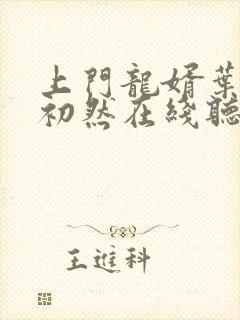 上門龍婿葉
初然在綫聽
王進科